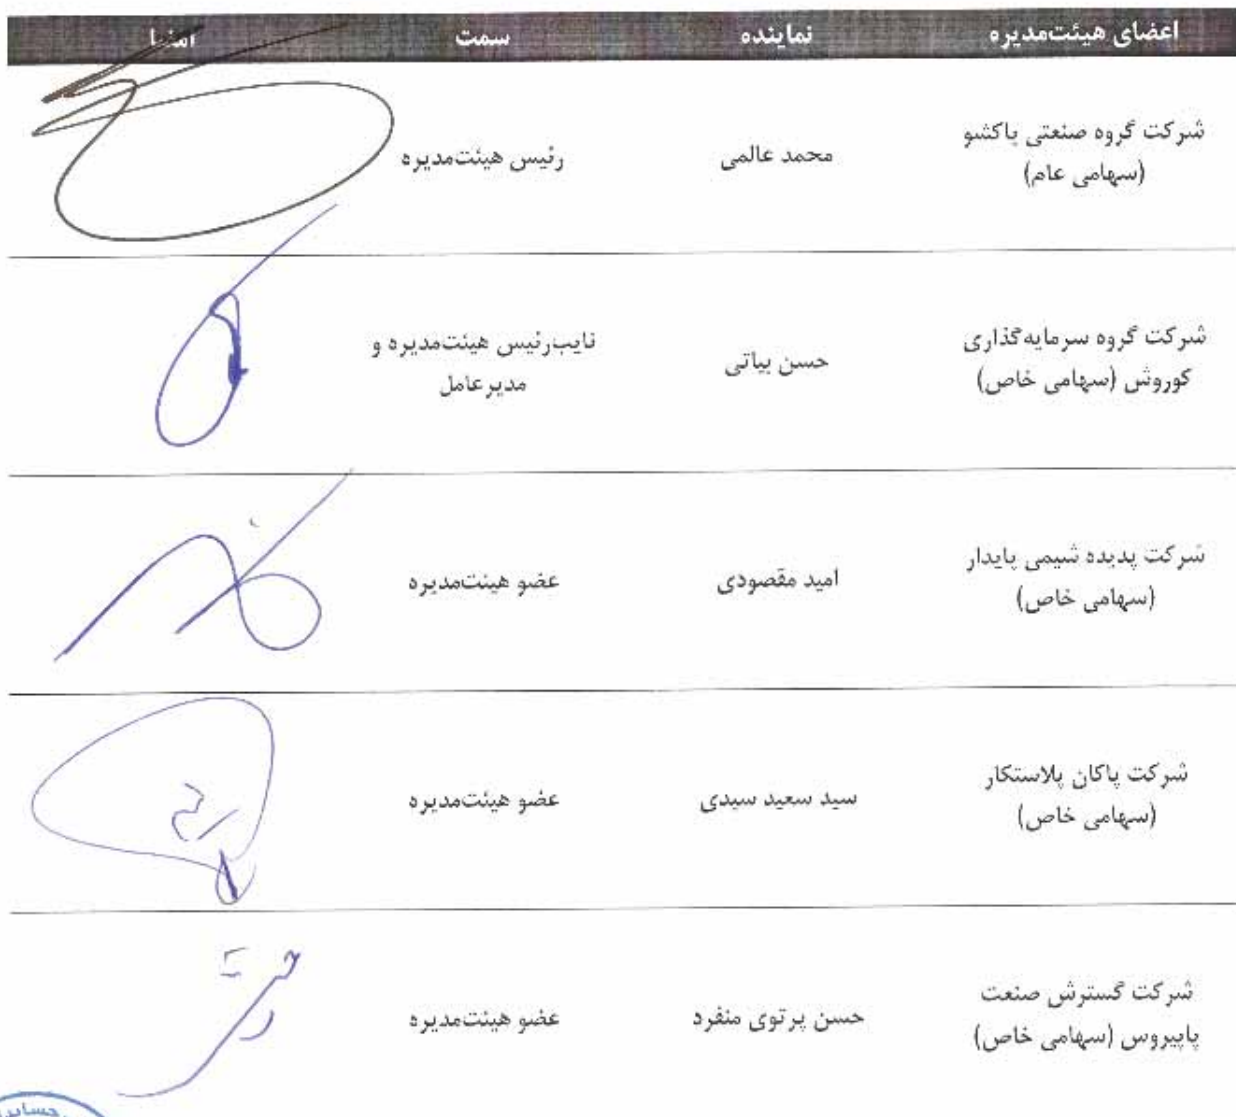 اعضای هیئت‌مدیره نماینده سمت امضا
شرکت گروه صنعتی پاکشو
(سهامی عام)
محمد عالمی
رئیس هیئت‌مدیره
شرکت گروه سرمایه‌گذاری
کوروش (سهامی خاص)
حسن بیاتی
نایب‌رئیس هیئت‌مدیره و
مدیرعامل
شرکت پدیده شیمی پایدار
(سهامی خاص)
امید مقصودی
عضو هیئت‌مدیره
شرکت پاکان پلاستکار
(سهامی خاص)
سید سعید سیدی
عضو هیئت‌مدیره
شرکت گسترش صنعت
پاپیروس (سهامی خاص)
حسن پرتوی منفرد
عضو هیئت‌مدیره